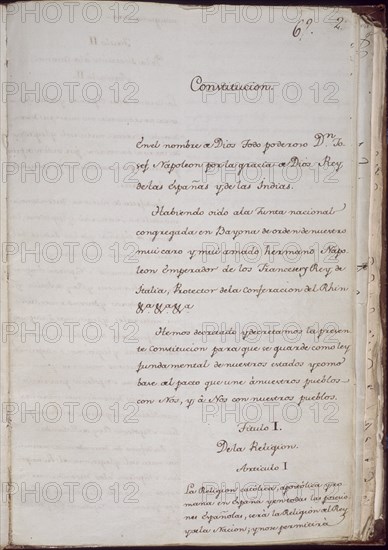 6º. 2.
Constitucion.
En el nombre a Dios Todo poderoso Dn. Jo-
sef Napoleon por la gracia a Dios Rey
de las Españas y de las Indias.
Habiendo oido a la Junta nacional
congregada en Bayona de orden de nuestro
mui caro y mui amado hermano Napo
leon Emperador de los Franceses y Rey de
Italia, Protector de la Conferacion del Rhin
&a &a &a
Hemos decretado y decretamos la presen
te Constitucion para que se guarde como ley
fundamental de nuestros estados y como
base al pacto que une á nuestros pueblos
con Nos, y á Nos con nuestros pueblos.
Titulo I.
De la Religion.
Articulo I
La Religion catolica, apostolica y ro-
mana en España y en todas las posesio
nes Españolas, será la Religion al Rey
y a la Nacion; y no se permitirá
PHOTO 12